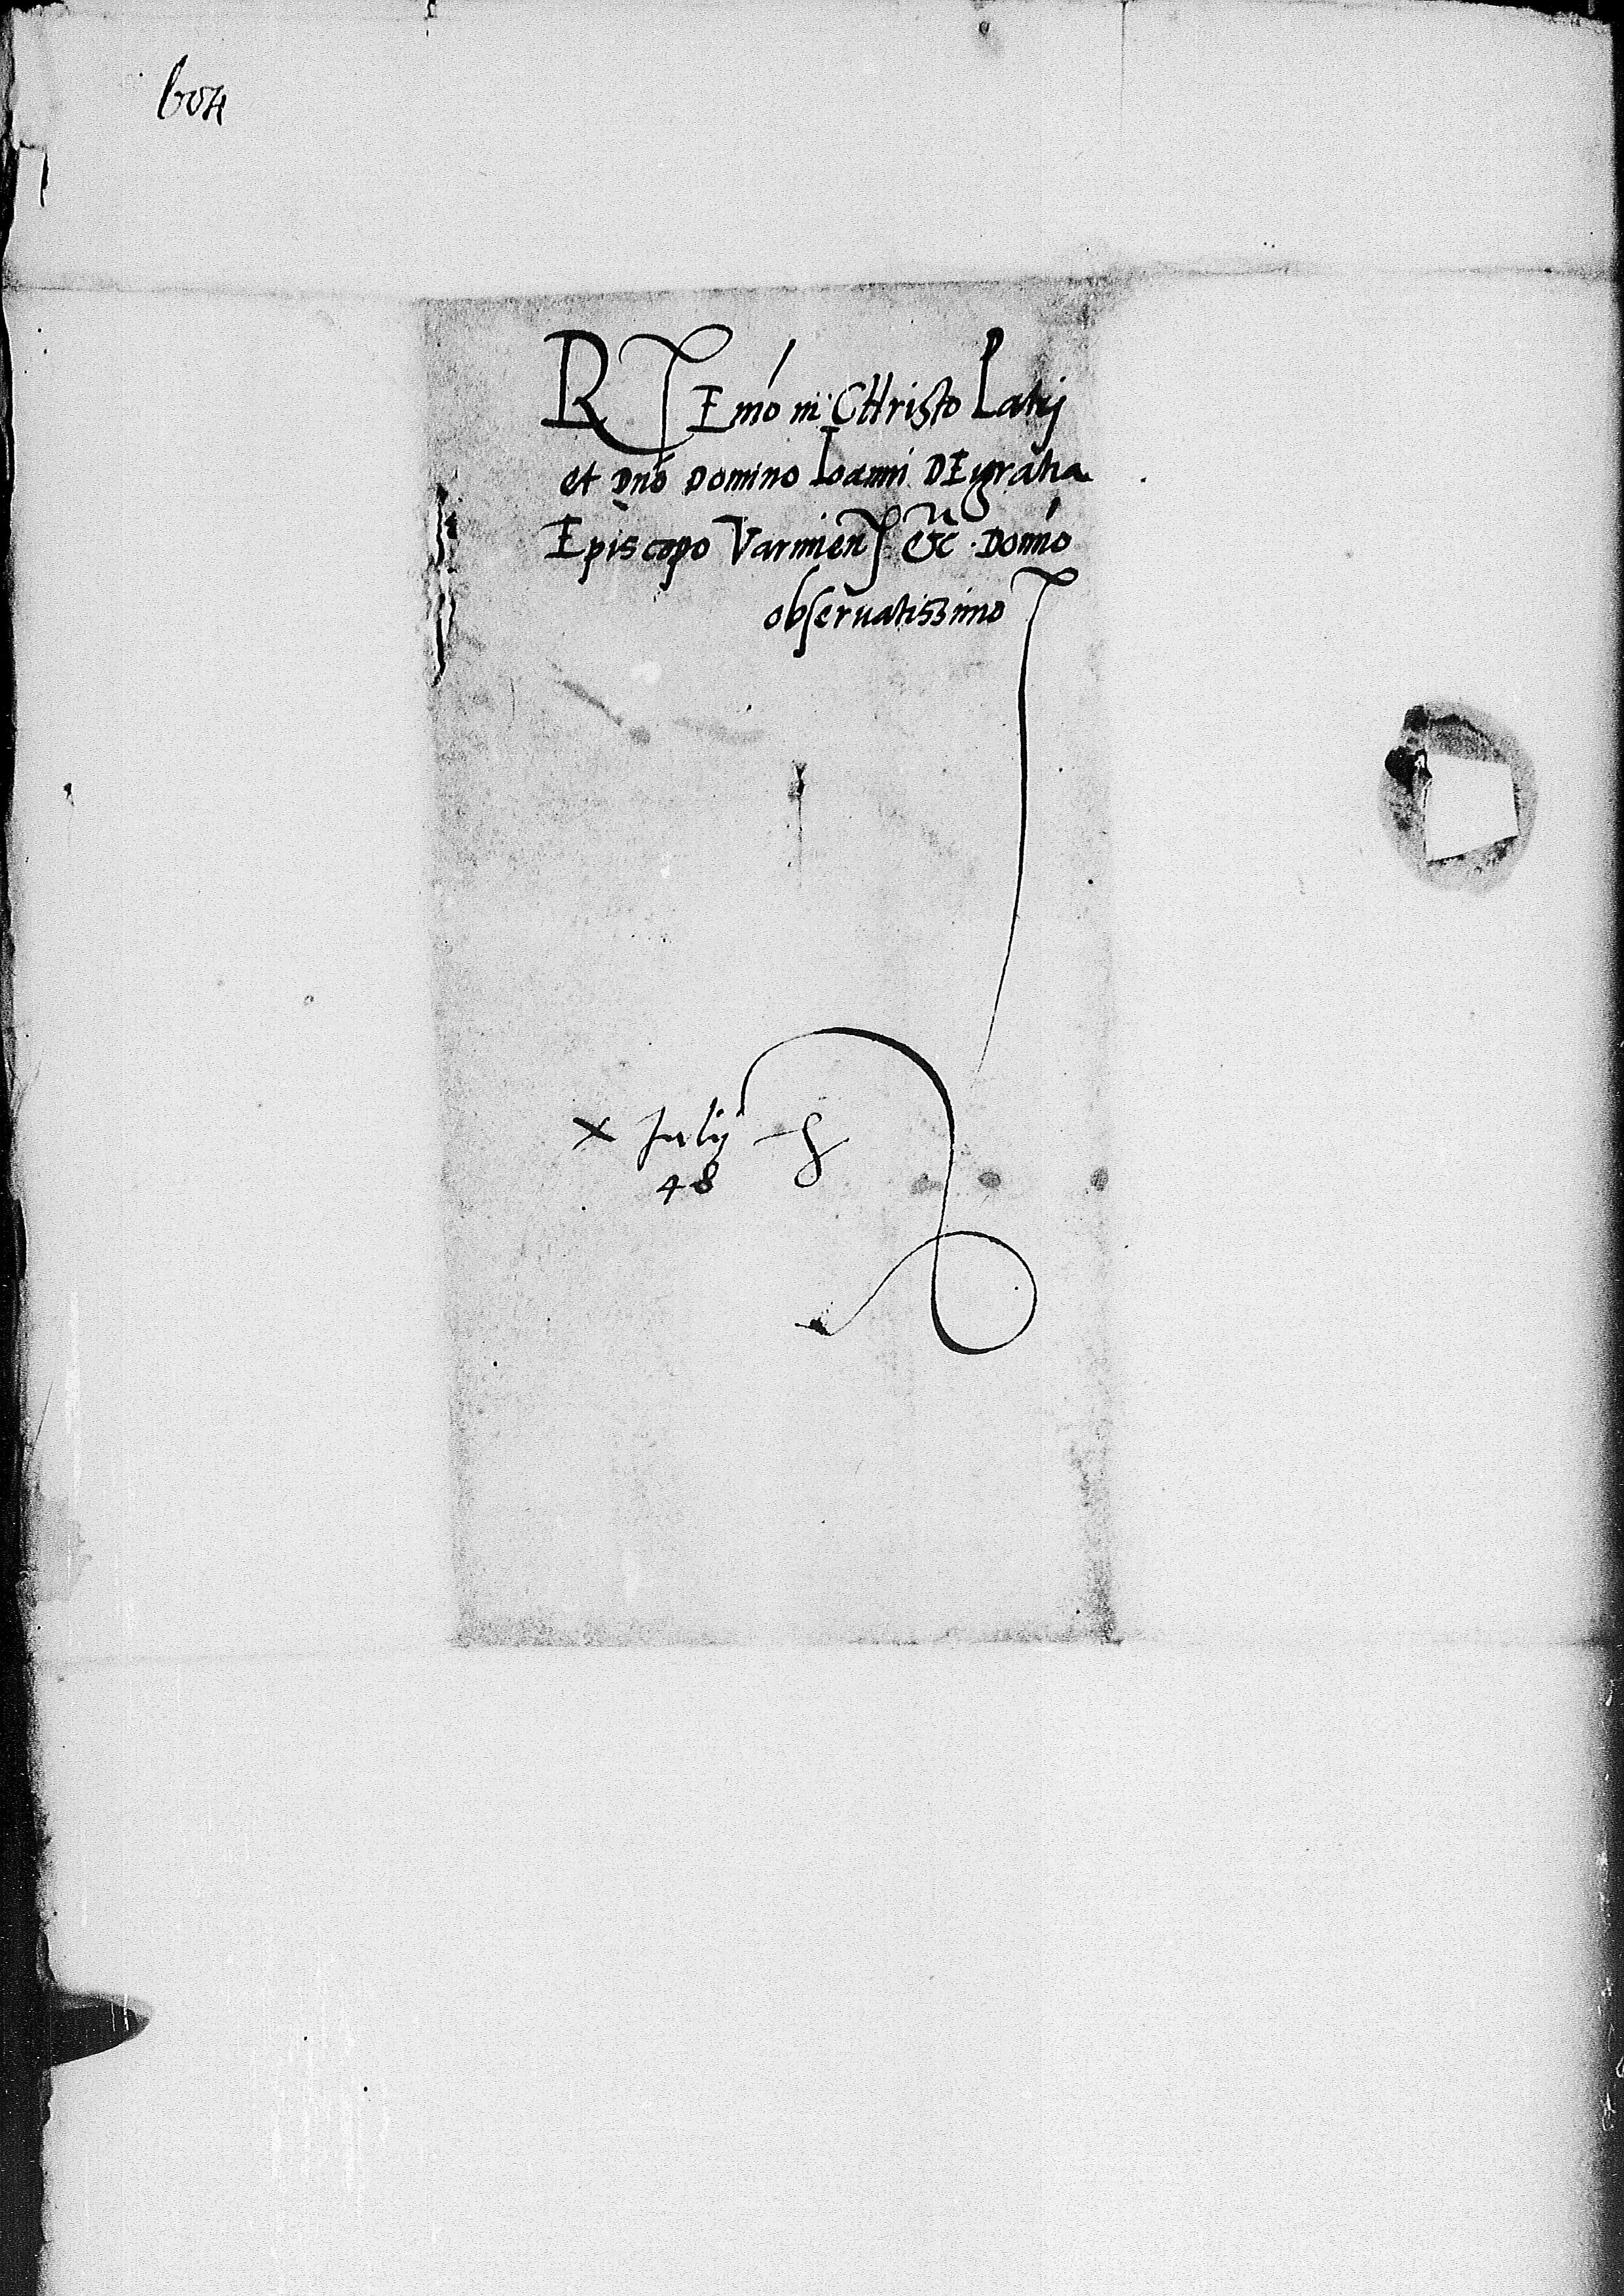 REmo in CHristo Patri
et Dno Domino Ioanni DEi gratia
Episcopo Varmien &c Domino
obseruatissimo
X Julij
48